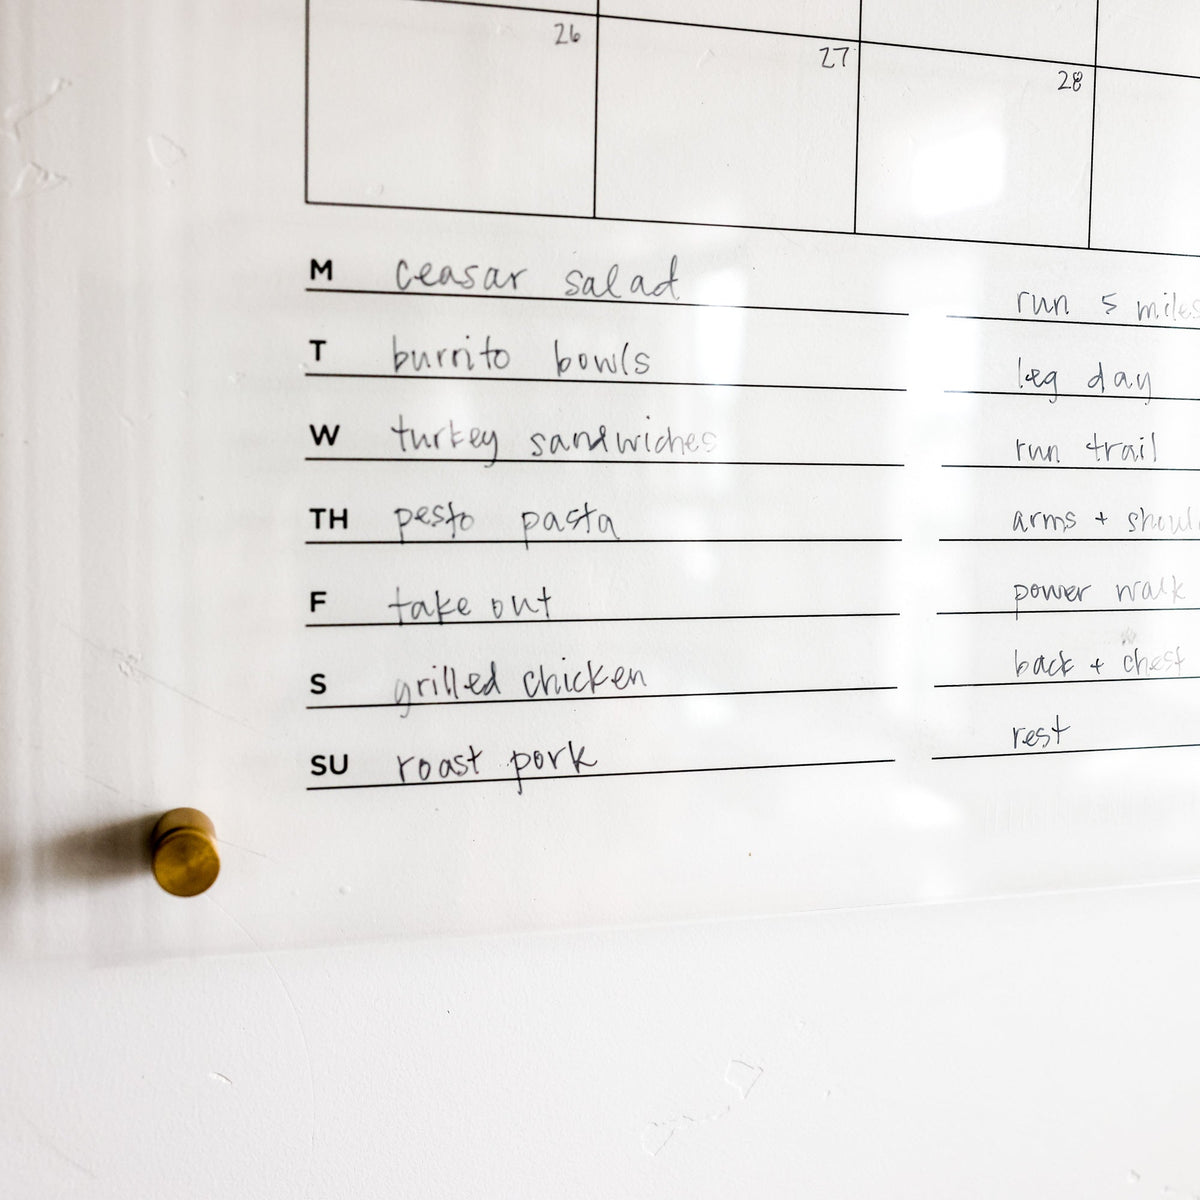 26 27 28
M ceasar salad run 5 miles
T burrito bowls leg day
W turkey sandwiches run trail
TH pesto pasta arms +
F take out power walk
S grilled chicken back + chest
SU roast pork rest